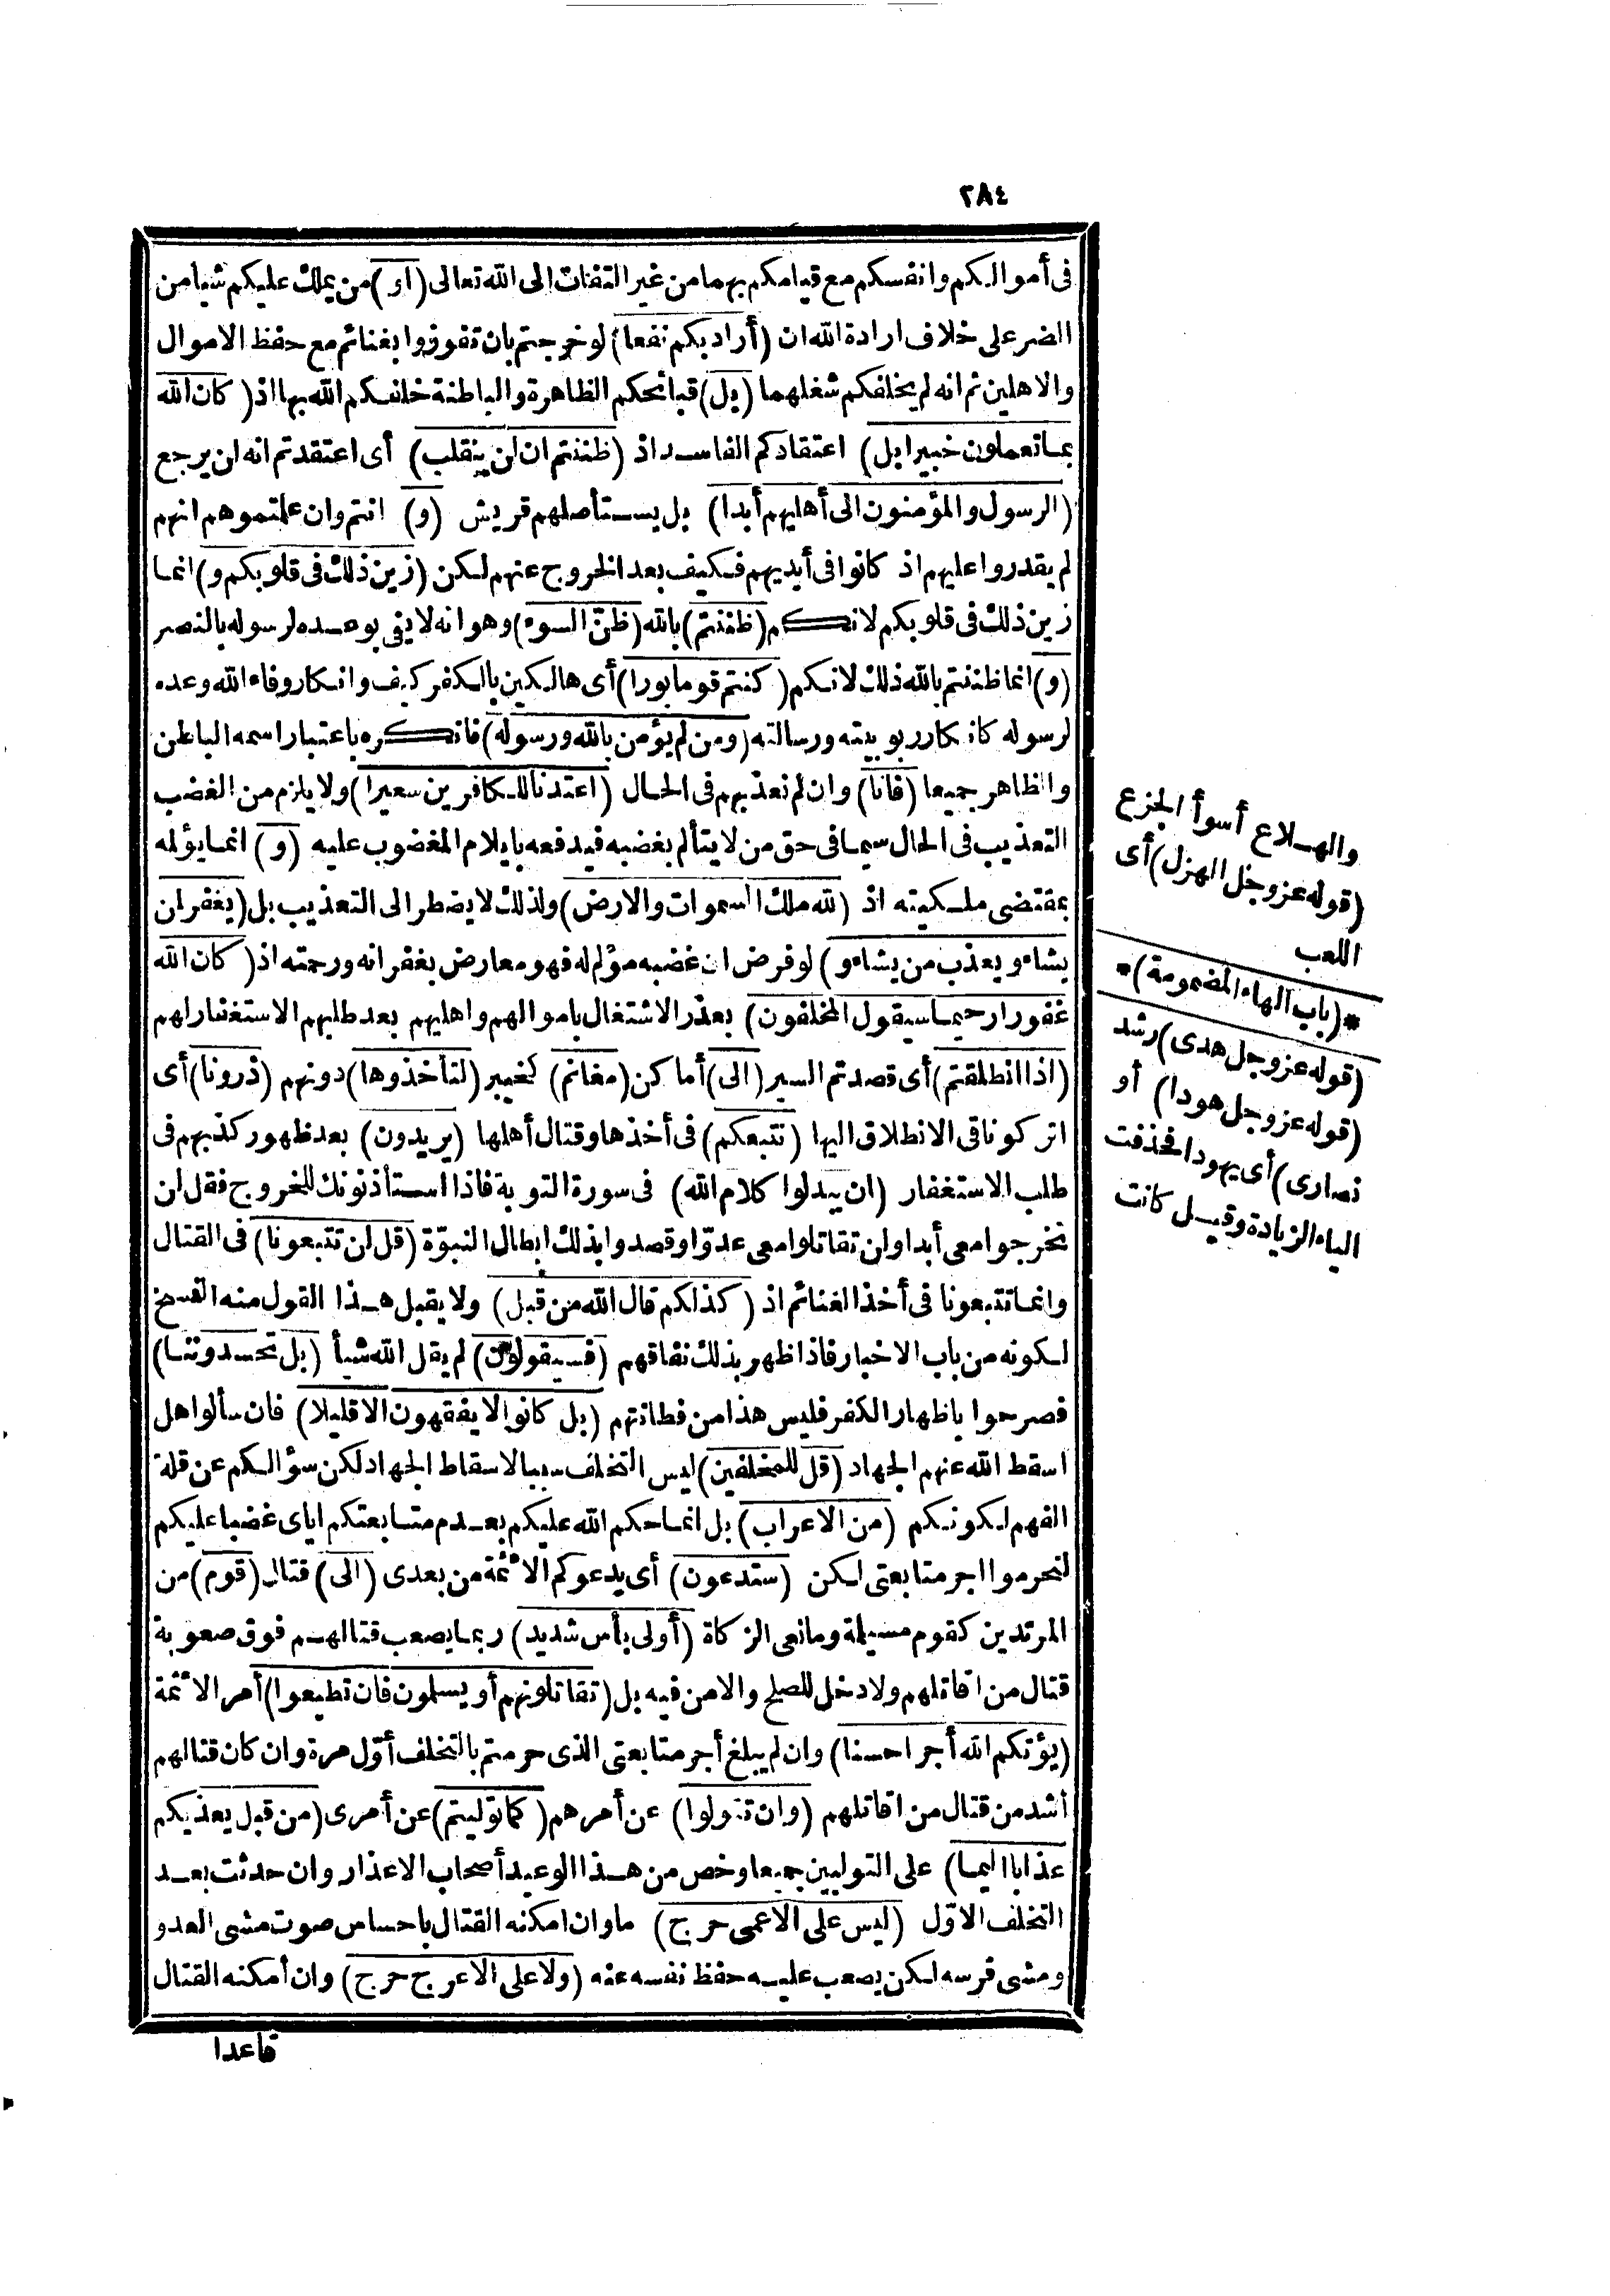 ٢٨٤
فى أموالكم وانفسكم مع قيامكم بهما من غير التفات الى الله تعالى (أو) من يملك عليكم شيأ من
الضر على خلاف ارادة الله ان (أراد بكم نفعا) لو خرجتم بان تفوزوا بغنائم مع حفظ الاموال
والاهلين ثم انه لم يخلفكم شغلهما (بل) قبائحكم الظاهرة والباطنة خلفكم الله بها اذ (كان الله
بما تعملون خبيرا بل) اعتقادكم الفاسد اذ (ظننتم ان لن ينقلب) أى اعتقدتم انه لن يرجع
(الرسول والمؤمنون الى أهليهم أبدا) بل يستأصلهم قريش (و) انتم وان علمتموهم انهم
لم يقدروا عليهم اذ كانوا فى أيديهم فكيف بعد الخروج عنهم لكن (زين ذلك فى قلوبكم و) انما
زين ذلك فى قلوبكم لانكم (ظننتم) بالله (ظن السوء) وهو انه لا يفى بوعده لرسوله بالنصر
(و) انما ظننتم بالله ذلك لانكم (كنتم قوما بورا) أى هالكين بالكفر كيف وانكار وفاء الله وعده
لرسوله كانكار ربوبيته ورسالته (ومن لم يؤمن بالله ورسوله) فانكره باعتبار اسمه الباطن
والظاهر جميعا (فانا) وان لم نعذبهم فى الحال (اعتدنا للكافرين سعيرا) ولا يلزم من الغضب
التعذيب فى الحال سيما فى حق من لا يتألم بغضبه فيدفعه بايلام المغضوب عليه (و) انما يؤلمه
بمقتضى ملكيته اذ (لله ملك السموات والارض) ولذلك لا يضطر الى التعذيب بل (يغفر لمن
يشاء ويعذب من يشاء و) لو فرض ان غضبه مؤلم له فهو معارض بغفرانه ورحمته اذ (كان الله
غفورا رحيما سيقول المخلفون) بعذر الاشتغال باموالهم واهليهم بعد طلبهم الاستغفار لهم
(اذا انطلقتم) أى قصدتم السير (الى) أماكن (مغانم) كخيبر (لتأخذوها) دونهم (ذرونا) أى
اتركونا فى الانطلاق اليها (نتبعكم) فى أخذها وقتال أهلها (يريدون) بعد ظهور كذبهم فى
طلب الاستغفار (ان يبدلوا كلام الله) فى سورة التوبة فاذا استأذنونك للخروج فقل لن
تخرجوا معى أبدا ولن تقاتلوا معى عدوّا وقصدوا بذلك ابطال النبوّة (قل لن تتبعونا) فى القتال
وانما تتبعونا فى أخذ الغنائم اذ (كذلكم قال الله من قبل) ولا يقبل هذا القول منه الفسخ
لكونه من باب الاخبار فاذا ظهر بذلك نفاقهم (فسيقولون) لم يقل الله شيأ (بل تحسدوننا)
فصرحوا باظهار الكفر فليس هذا من فطانتهم (بل كانوا لا يفقهون الا قليلا) فان سألوا هل
اسقط الله عنهم الجهاد (قل للمخلفين) ليس التخلف سببا لاسقاط الجهاد لكن سؤالكم عن قلة
الفهم لكونكم (من الاعراب) بل انما حكم الله عليكم بعدم متابعتكم اياى غضبا عليكم
لتحرموا اجر متابعتى لكن (ستدعون) أى يدعوكم الائمة من بعدى (الى) قتال (قوم) من
المرتدين كقوم مسيلمة ومانعى الزكاة (أولى بأس شديد) ربما يصعب قتالهم فوق صعوبة
قتال من اقاتلهم ولا دخل للصلح والامن فيه بل (تقاتلونهم أو يسلمون فان تطيعوا) أمر الائمة
(يؤتكم الله أجرا حسنا) وان لم يبلغ أجر متابعتى الذى حرمتم بالتخلف أوّل مرة وان كان قتالهم
أشد من قتال من اقاتلهم (وان تتولوا) عن أمرهم (كما توليتم) عن أمرى (من قبل يعذبكم
عذابا اليما) على التوليين جميعا وخص من هذا الوعيد أصحاب الاعذار وان حدثت بعد
التخلف الاوّل (ليس على الاعمى حرج) ما وان امكنه القتال باحساس صوت مشى العدو
ومشى فرسه لكن يصعب عليه حفظ نفسه عنه (ولا على الاعرج حرج) وان أمكنه القتال
قاعدا
والهلاع أسوأ الجزع
(قوله عز وجل الهزل) أى
اللعب
*(باب الهاء المضمومة)*
(قوله عز وجل هدى) رشد
(قوله عز وجل هودا) أو
نصارى) أى يهودا فحذفت
الياء الزيادة وقيل كانت